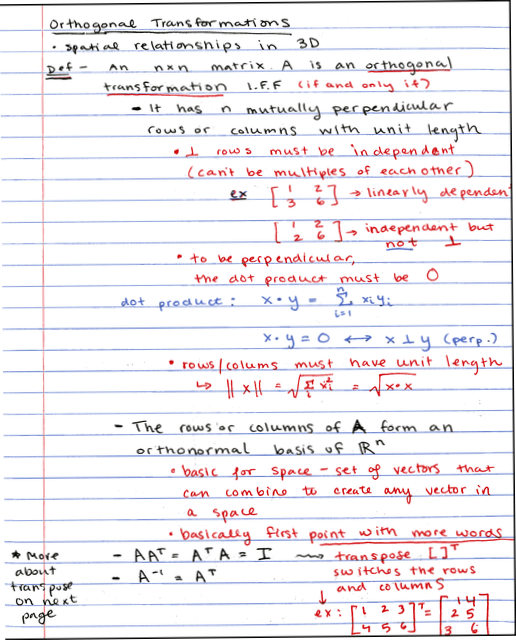 Orthogonal Transformations
• spatial relationships in 3D
Def - An n×n matrix A is an orthogonal
transformation I.F.F (if and only if)
- It has n mutually perpendicular
rows or columns with unit length
• ⊥ rows must be independent
(can't be multiples of each other)
ex [1 2; 3 6] → linearly dependent
[1 2; 2 6] → independent but
not ⊥
• to be perpendicular,
the dot product must be 0
dot product: x • y = Σ_{i=1}^{n} x_i y_i
x • y = 0 ↔ x ⊥ y (perp.)
• rows/colums must have unit length
↳ ||x|| = √(Σ_i x_i²) = √(x•x)
- The rows or columns of A form an
orthonormal basis of ℝⁿ
• basic for space - set of vectors that
can combine to create any vector in
a space
• basically first point with more words
* More
about
transpose
on next
page
- AAᵀ = AᵀA = I ⟿ transpose [ ]ᵀ
- A⁻¹ = Aᵀ
switches the rows
and columns
↓
ex: [1 2 3; 4 5 6]ᵀ = [1 4; 2 5; 3 6]